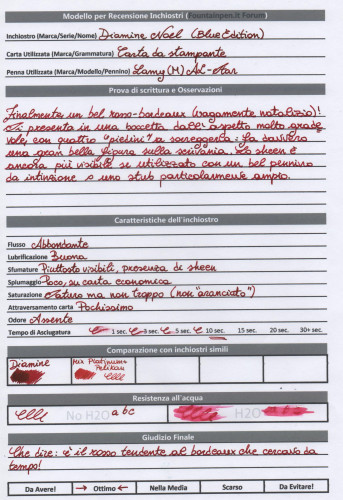 Modello per Recensione Inchiostri (Fountainpen.it Forum)
Inchiostro (Marca/Serie/Nome) Diamine Noel (Blue Edition)
Carta Utilizzata (Marca/Grammatura) Carta da stampante
Penna Utilizzata (Marca/Modello/Pennino) Lamy (M) AL-Star
Prova di scrittura e Osservazioni
Finalmente un bel rosso-bordeaux (vagamente natalizio)!
Si presenta in una boccetta dall'aspetto molto grade
vole, con quattro "piedini" a sorreggerla: fa davvero
una gran bella figura sulla scrivania. Lo sheen è
ancora più visibile se utilizzato con un bel pennino
da intinzione o uno stub particolarmente ampio.
Caratteristiche dell'inchiostro
Flusso Abbondante
Lubrificazione Buona
Sfumature Piuttosto visibili, presenza di sheen
Spiumaggio Poco, su carta economica
Saturazione Saturo ma non troppo (non "aranciato")
Attraversamento carta Pochissimo
Odore Assente
Tempo di Asciugatura 1 sec. 3 sec. 5 sec. 10 sec. 15 sec. 20 sec. 30+ sec.
Comparazione con inchiostri simili
Diamine Mix Platinum+
Pelikan
Resistenza all'acqua
No H2O abc H2O
Giudizio Finale
Che dire: è il rosso tendente al bordeaux che cercavo da
tempo!
Da Avere! → Ottimo ← Nella Media Scarso Da Evitare!